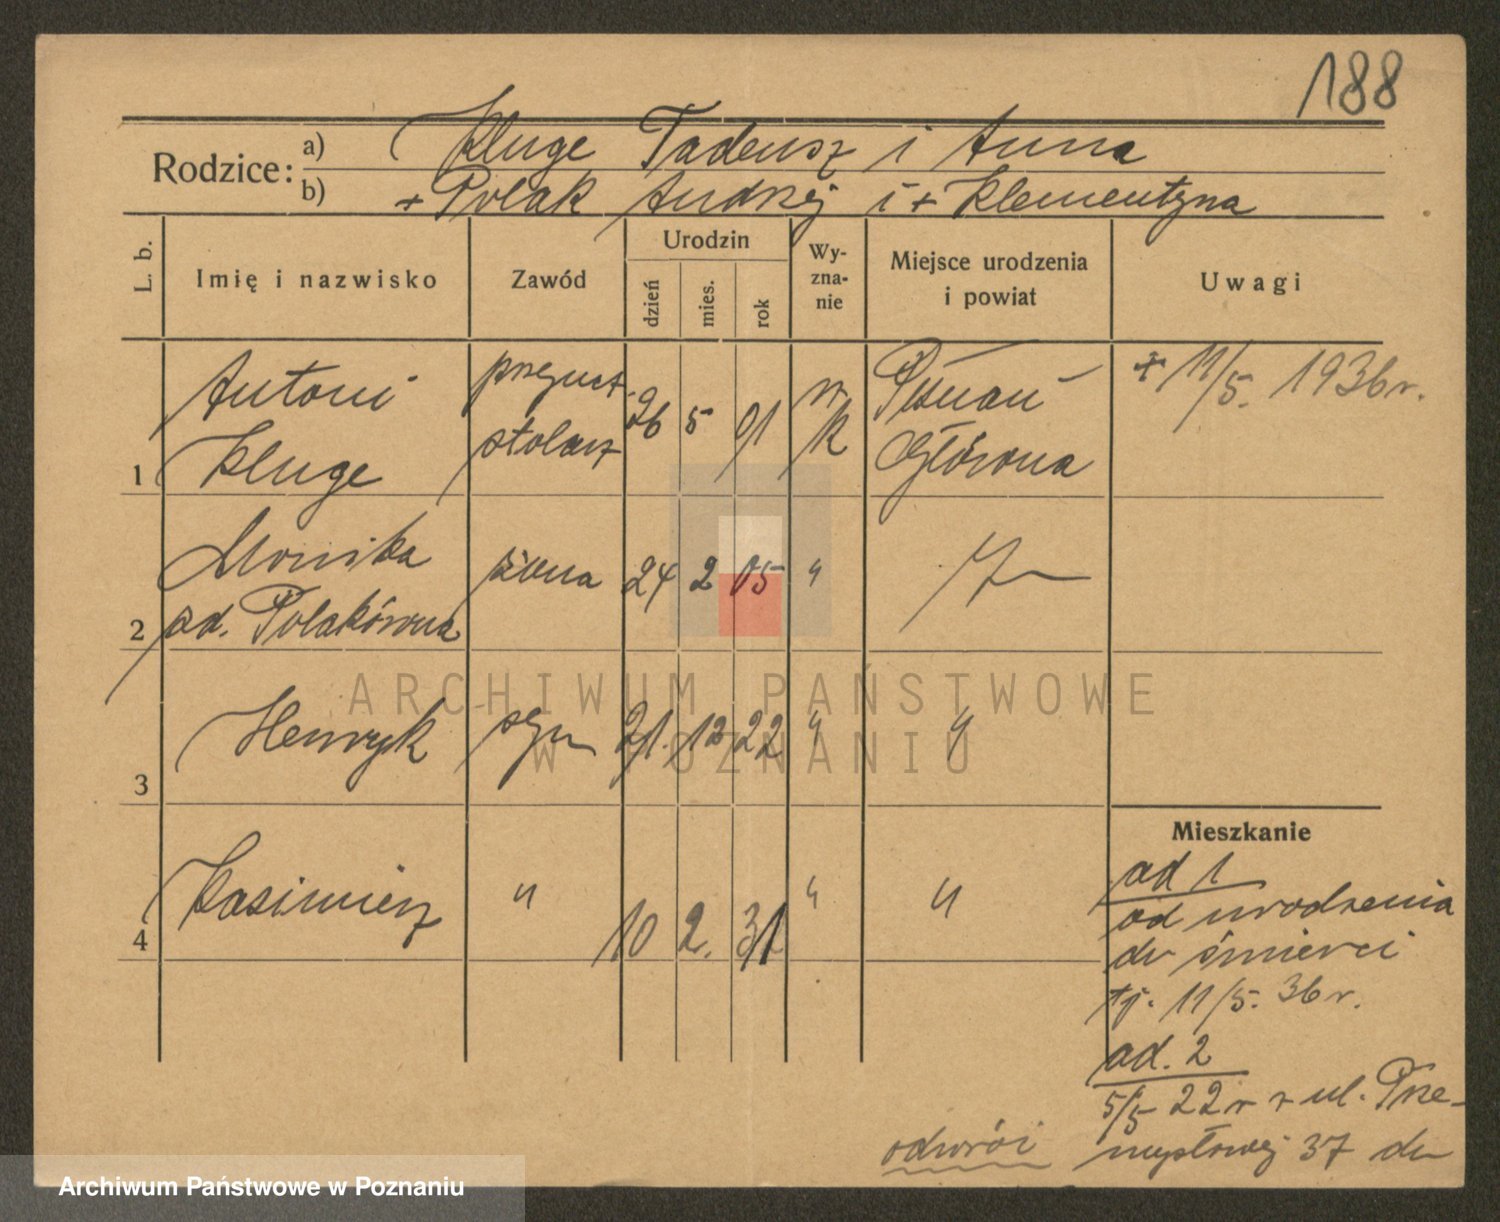 188
Rodzice: a) Kluge Tadeusz i Anna
b) + Polak Andrzej i + Klementyna
L. b. Imię i nazwisko Zawód Urodzin dzień mies. rok Wy-zna-nie Miejsce urodzenia i powiat Uwagi
1 Antoni Kluge stolarz 26 5 01 r. k Poznań Główna + 11/5. 1936 r.
2 Monika żona 24 2 05 "
3 Henryk syn 21. 12 22 " "
4 Kasimierz " 10 2. 31 " "
Mieszkanie
ad 1
od urodzenia
do śmierci
tj. 11/5. 36 r.
ad. 2
5/5 22 r z ul. Prze-
mysłowej 37 do
odwróć
ARCHIWUM PAŃSTWOWE
W POZNANIU
Archiwum Państwowe w Poznaniu